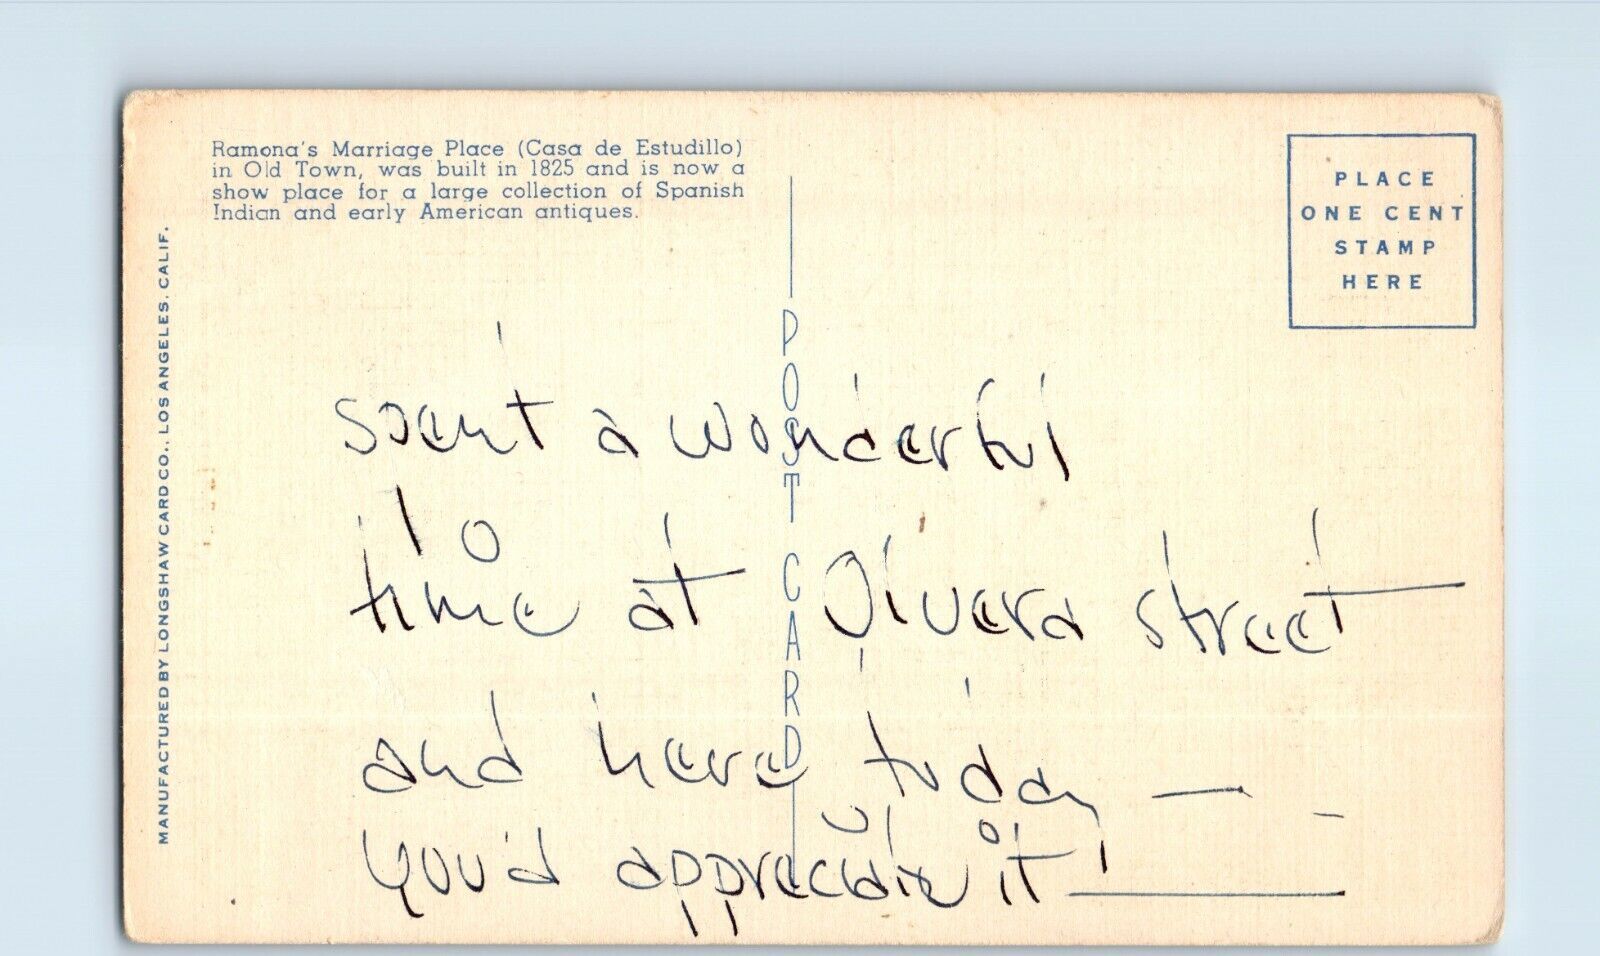 Ramona's Marriage Place (Casa de Estudillo)
in Old Town, was built in 1825 and is now a
show place for a large collection of Spanish
Indian and early American antiques.
MANUFACTURED BY LONGSHAW CARD CO., LOS ANGELES. CALIF.
POST CARD
PLACE
ONE CENT
STAMP
HERE
spent a wonderful
time at Olvera street
and here today —
you'd appreciate it